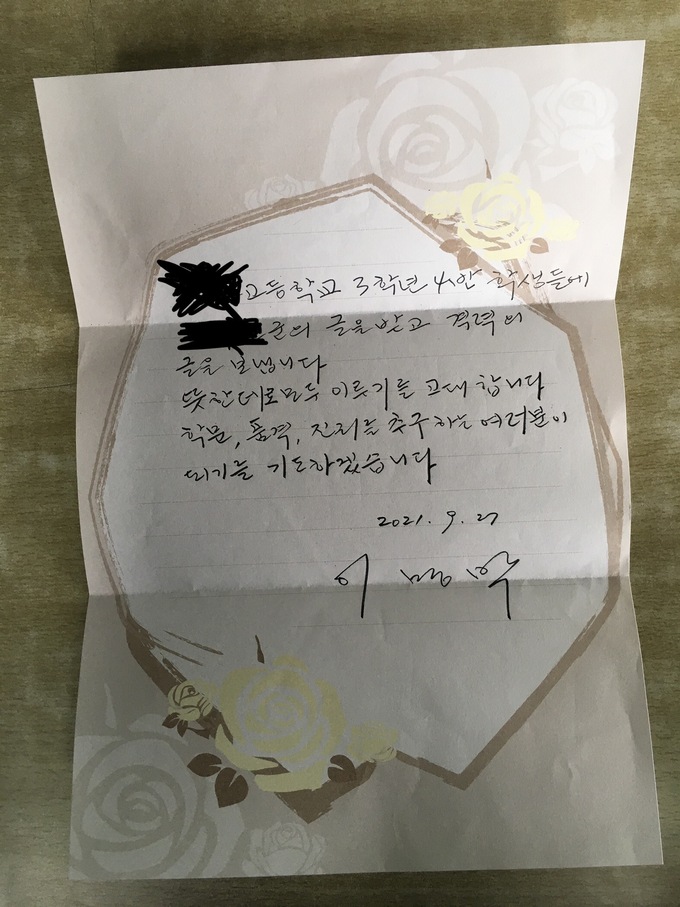 고등학교 3학년 4반 학생들에
군의 글을 받고 격려의
글을 보냅니다
뜻한데로 모두 이루기를 고대 합니다
학문, 품격, 진리를 추구하는 여러분이
되기를 기도하겠습니다
2021. 9. 27
이 명 박